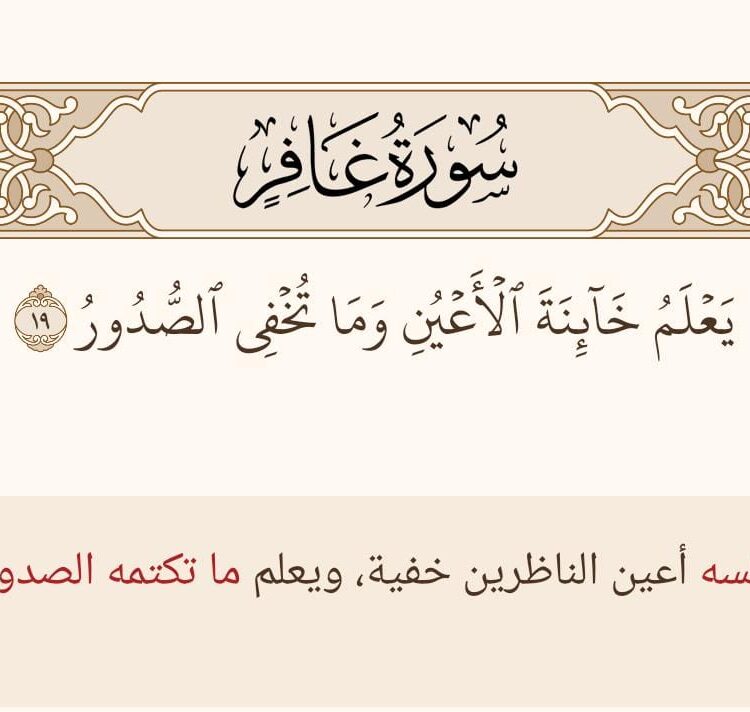 سُورَةُ غَافِرٍ
يَعْلَمُ خَآئِنَةَ ٱلْأَعْيُنِ وَمَا تُخْفِى ٱلصُّدُورُ ١٩
أعين الناظرين خفية، ويعلم ما تكتمه